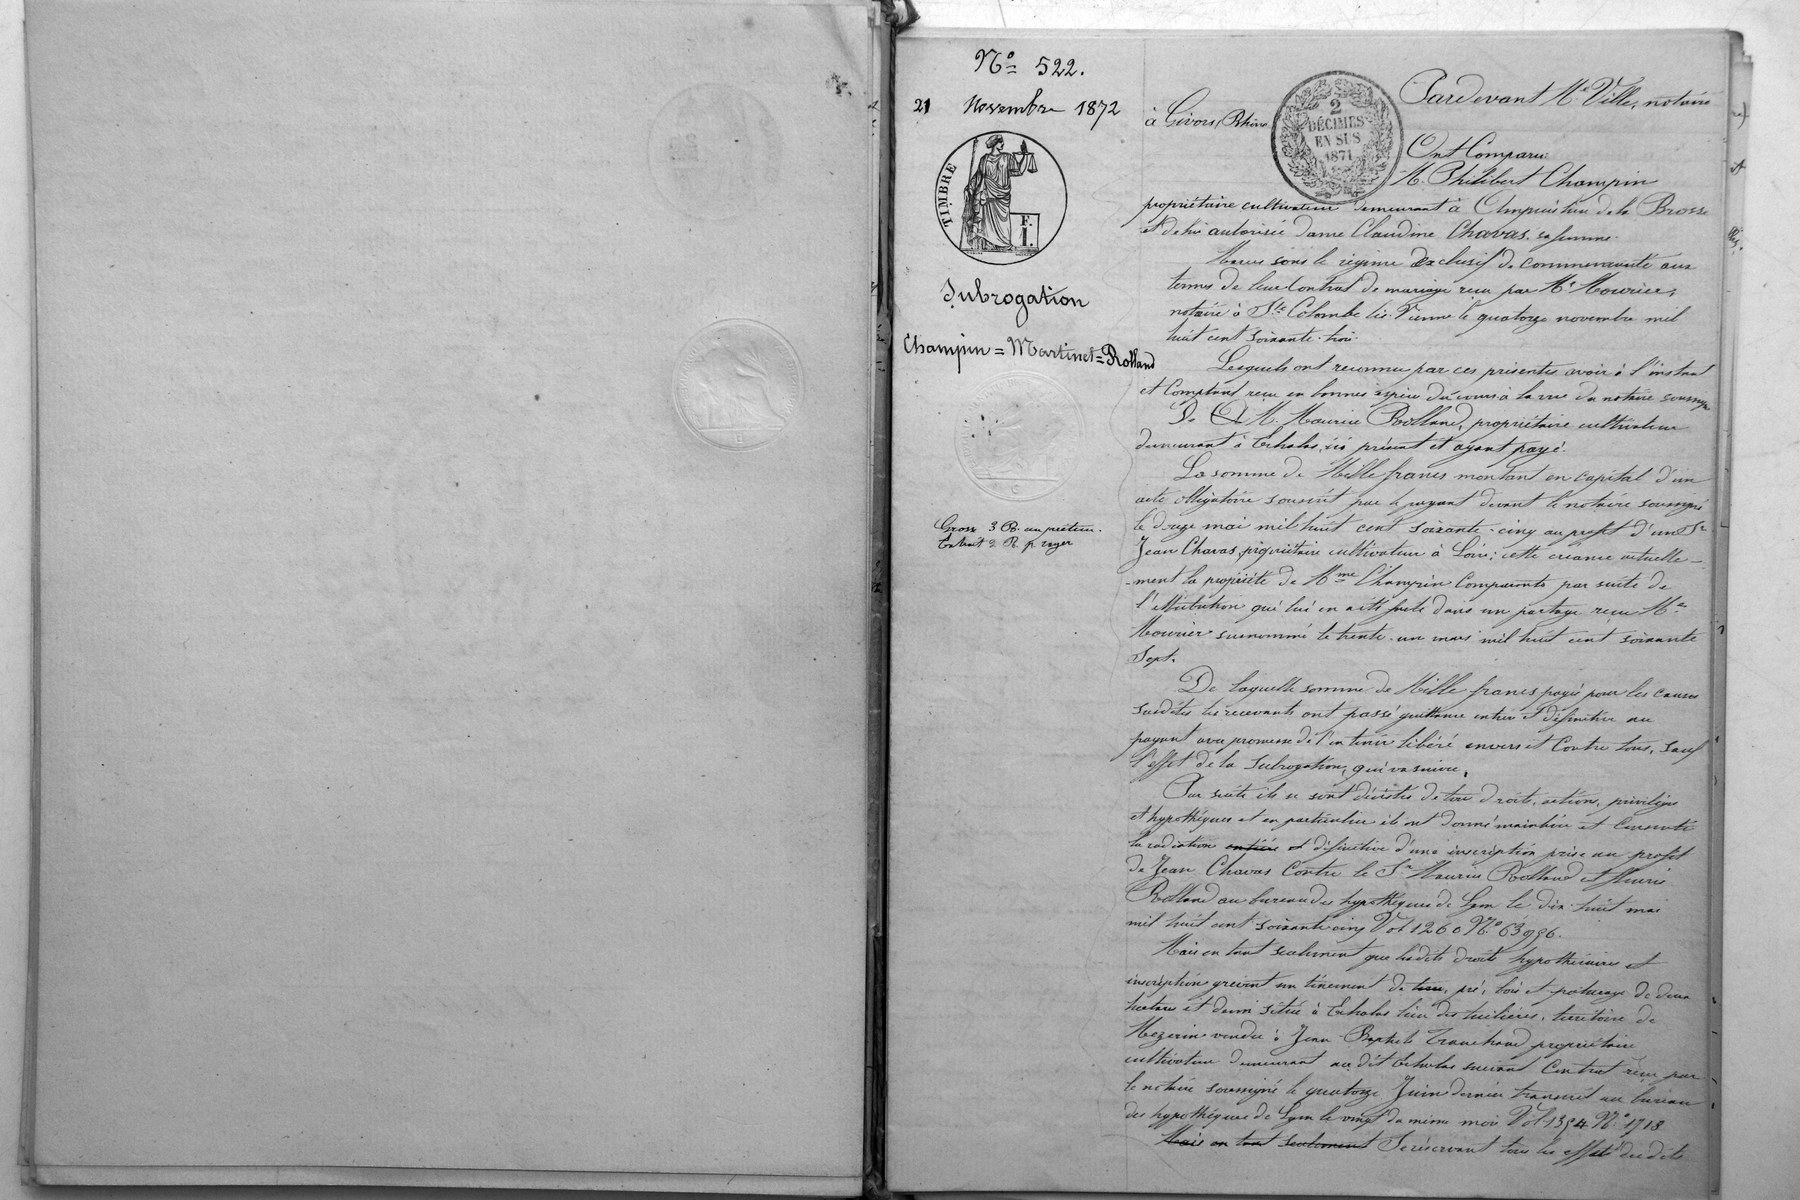 N° 522.
21 Novembre 1872
TIMBRE
F.
I.
Subrogation
Champin = Martinet = Rolland
Grosse 3 R. au prêteur.
Extrait 2 R. p. rayer
2
DÉCIMES
EN SUS
1871
Pardevant Me Ville, notaire
à Givors, Rhône
Ont Comparu:
M. Philibert Champin
propriétaire cultivateur demeurant à Ampuis lieu de la Brosse
et de lui autorisée dame Claudine Chavas, sa femme.
Mariés sous le régime exclusif de communauté aux
termes de leur Contrat de mariage reçu par Me Mourier,
notaire à Ste Colombe lès Vienne le quatorze novembre mil
huit cent soixante-trois.
Lesquels ont reconnu par ces présentes avoir à l'instant
et Comptant reçu en bonnes espèces du cours à la vue du notaire soussigné
De M. Maurice Rolland, propriétaire cultivateur
demeurant à Echalas, ici présent et ayant payé.
La somme de Mille francs montant en capital d'un
acte obligatoire souscrit par le payant devant le notaire soussigné
le douze mai mil huit cent soixante-cinq au profit d'un Sr
Jean Chavas, propriétaire cultivateur à Loire; cette créance actuelle-
-ment la propriété de Mme Champin Comparante par suite de
l'attribution qui lui en a été faite dans un partage reçu Me
Mourier susnommé le trente-un mars mil huit cent soixante
Sept.
De laquelle somme de Mille francs payée pour les causes
susdites les recevants ont passé quittance entière et définitive au
payant avec promesse de l'en tenir libéré envers et Contre tous, sauf
l'effet de la subrogation, qui va suivre.
Par suite ils se sont désistés de tous droits, actions, privilèges
et hypothèques et en particulier ils ont donné mainlevée et Consenti
la radiation entière et définitive d'une inscription prise au profit
de Jean Chavas Contre le Sr Maurice Rolland et
Rolland au bureau des hypothèques de Lyon le dix-huit mai
mil huit cent soixante cinq Vol 1260 N° 63956.
Mais en tant seulement que lesdits droits hypothécaires et
inscription grèvent un tènement de terre, pré, bois et pâturage de deux
hectares et demi situé à Echalas lieu des territoire de
Mezerin vendu à Jean-Baptiste Tranchand propriétaire
cultivateur demeurant au dit Echalas suivant Contrat reçu par
le notaire soussigné le quatorze Juin dernier transcrit au bureau
des hypothèques de Lyon le vingt du même mois Vol 1394 N° 1718
Mais en tant seulement Se réservant tous les effets desdits